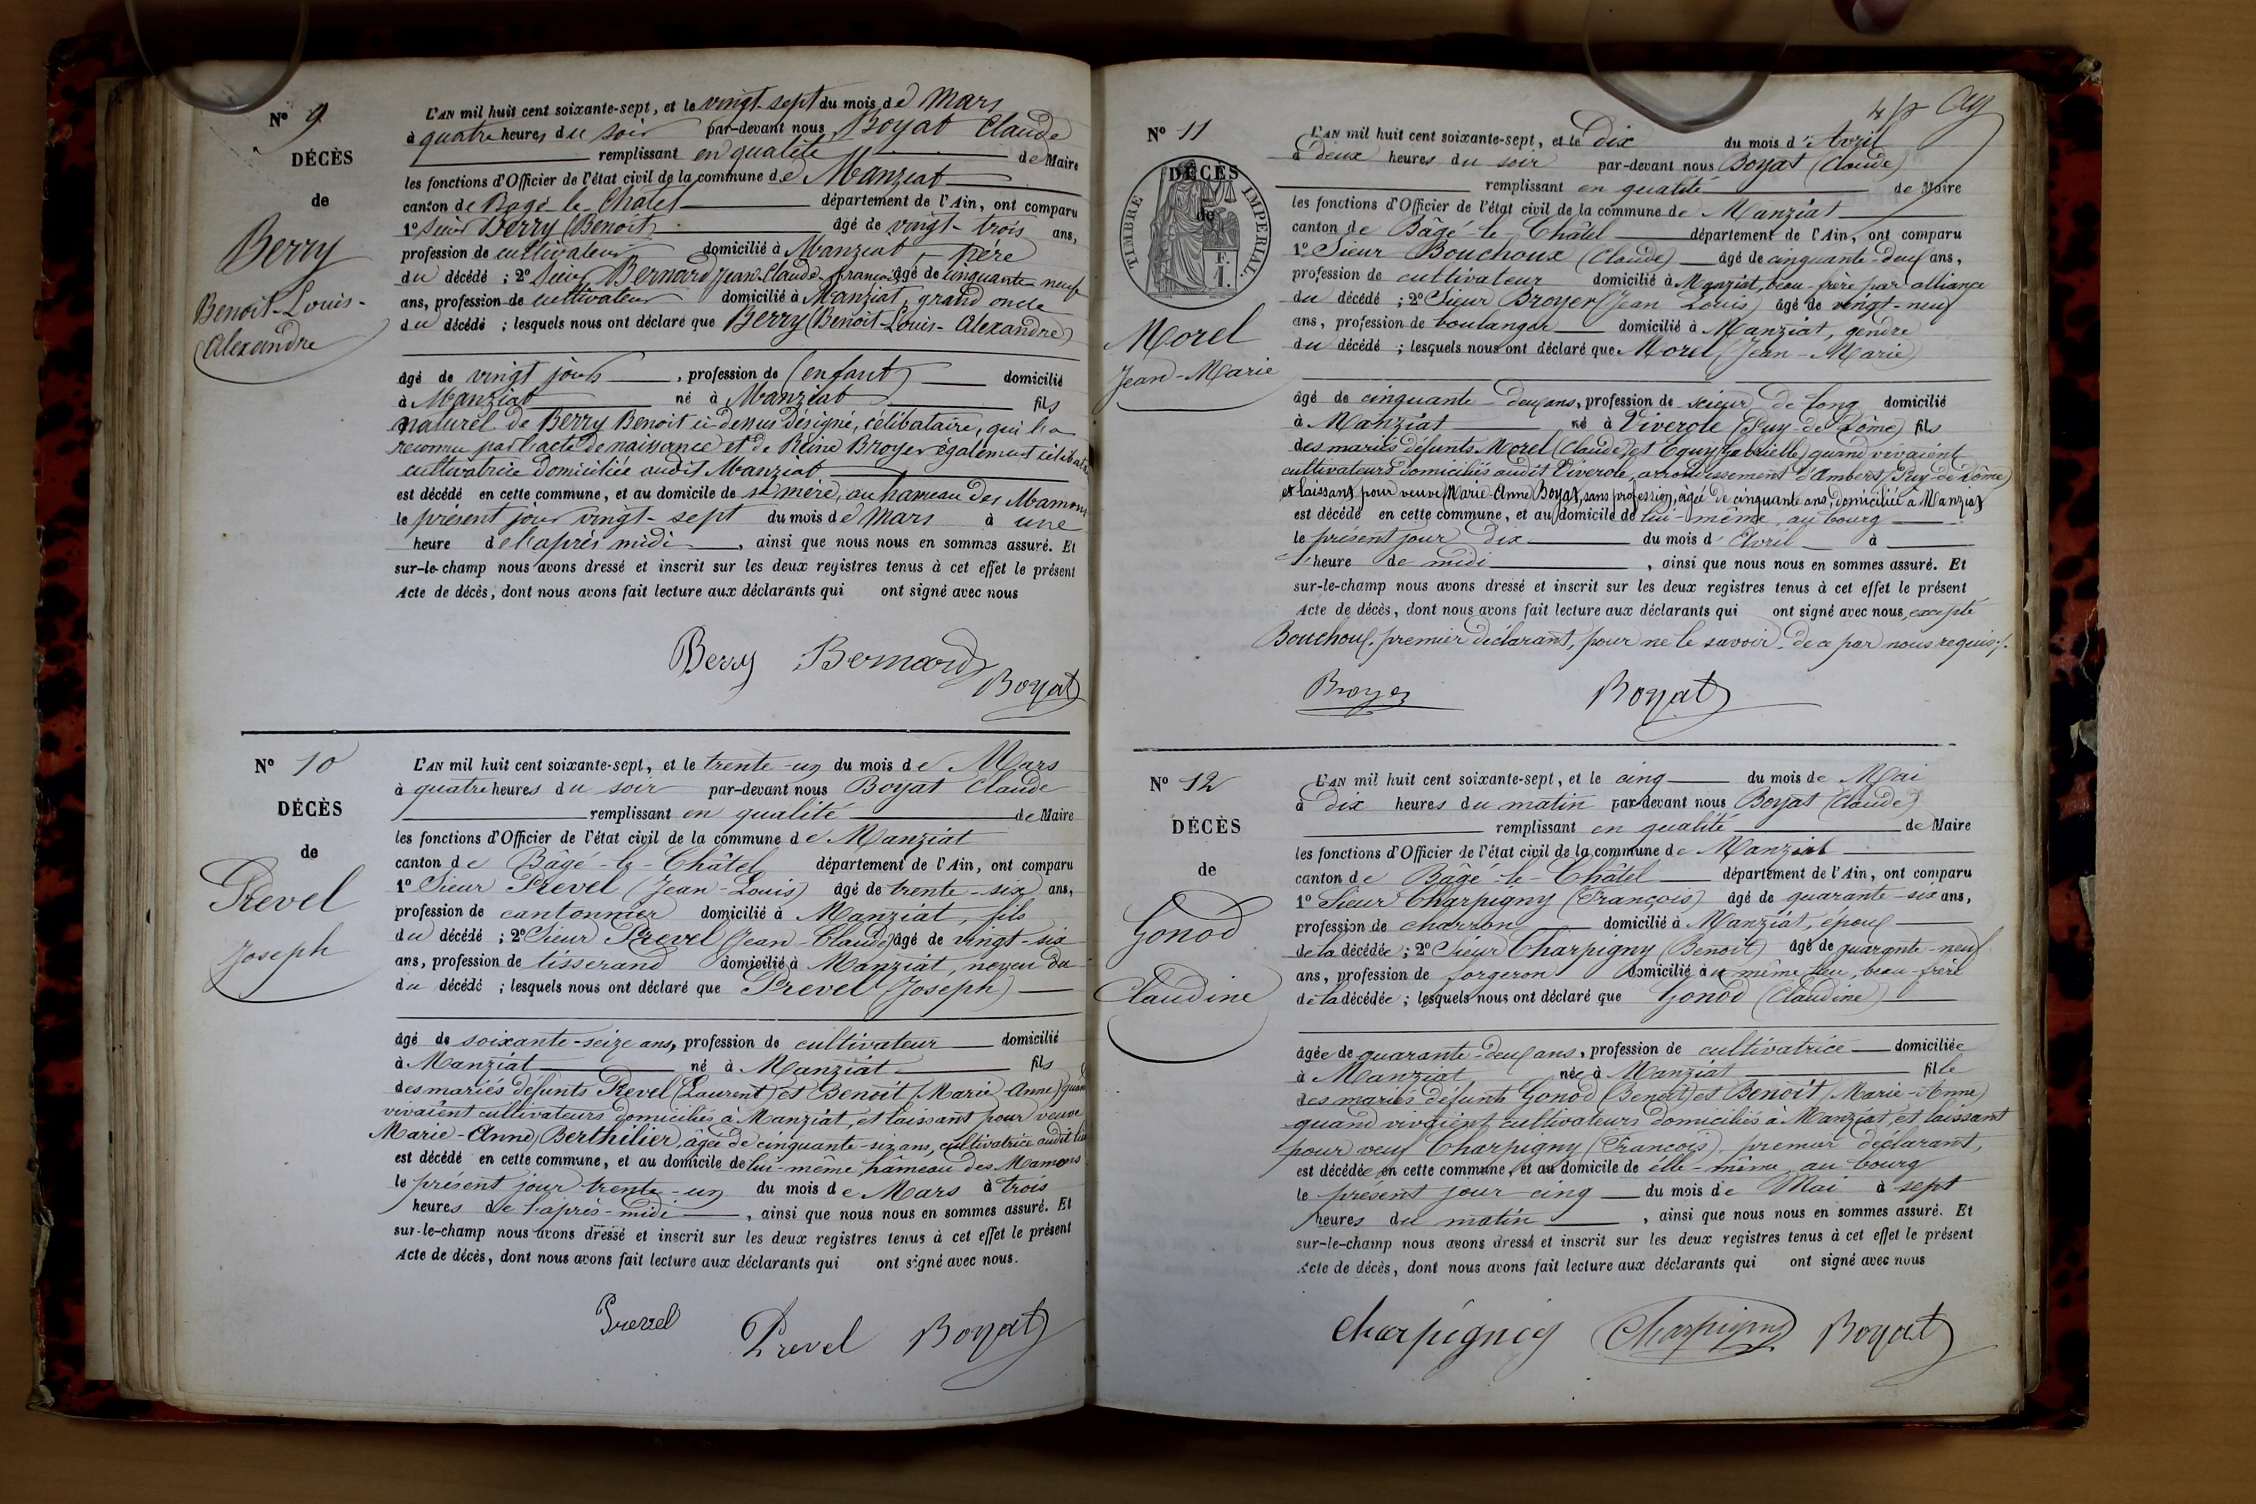 N° 9
DÉCÈS
de
Berry
Benoit-Louis-
Alexandre
L'AN mil huit cent soixante-sept, et le vingt-sept du mois de Mars
à quatre heures du soir par-devant nous Boyat Claude
remplissant en qualité de Maire
les fonctions d'Officier de l'état civil de la commune de Manziat
canton de Bagé-le-Châtel département de l'Ain, ont comparu
1° Sieur Berry (Benoit) âgé de vingt-trois ans,
profession de cultivateur domicilié à Manziat, père
du décédé ; 2° Sieur Bernard Jean-Claude-François âgé de cinquante-neuf
ans, profession de cultivateur domicilié à Manziat, grand oncle
du décédé ; lesquels nous ont déclaré que Berry (Benoit-Louis-Alexandre)
âgé de vingt jours, profession de (enfant) domicilié
à Manziat né à Manziat fils
naturel de Berry Benoit ci-dessus désigné, célibataire, qui l'a
reconnu par l'acte de naissance et de Reine Broyer également célibataire
cultivatrice domiciliée audit Manziat
est décédé en cette commune, et au domicile de sa mère, au hameau des Mamons
le présent jour vingt-sept du mois de Mars à une
heure de l'après midi, ainsi que nous nous en sommes assuré. Et
sur-le-champ nous avons dressé et inscrit sur les deux registres tenus à cet effet le présent
Acte de décès, dont nous avons fait lecture aux déclarants qui ont signé avec nous
Berry Bernard
Boyat
N° 10
DÉCÈS
de
Prevel
Joseph
L'AN mil huit cent soixante-sept, et le trente-un du mois de Mars
à quatre heures du soir par-devant nous Boyat Claude
remplissant en qualité de Maire
les fonctions d'Officier de l'état civil de la commune de Manziat
canton de Bâgé-le-Châtel département de l'Ain, ont comparu
1° Sieur Prevel (Jean-Louis) âgé de trente-six ans,
profession de cantonnier domicilié à Manziat, fils
du décédé ; 2° Sieur Prevel (Jean-Claude) âgé de vingt-six
ans, profession de tisserand domicilié à Manziat, neveu du
du décédé ; lesquels nous ont déclaré que Prevel (Joseph)
âgé de soixante-seize ans, profession de cultivateur domicilié
à Manziat né à Manziat fils
des mariés défunts Prevel (Laurent) et Benoit (Marie-Anne) quand
vivaient cultivateurs domiciliés à Manziat, et laissant pour veuve
Marie-Anne Berthilier, âgée de cinquante-six ans, cultivatrice audit lieu
est décédé en cette commune, et au domicile de lui-même hameau des Mamons
le présent jour trente-un du mois de Mars à trois
heures de l'après-midi, ainsi que nous nous en sommes assuré. Et
sur-le-champ nous avons dressé et inscrit sur les deux registres tenus à cet effet le présent
Acte de décès, dont nous avons fait lecture aux déclarants qui ont signé avec nous.
Prevel Prevel Boyat
N° 11
DÉCÈS
de
TIMBRE IMPÉRIAL.
F. 1.
Morel
Jean-Marie
L'AN mil huit cent soixante-sept, et le dix du mois d'Avril
à deux heures du soir par-devant nous Boyat (Claude)
remplissant en qualité de Maire
les fonctions d'Officier de l'état civil de la commune de Manziat
canton de Bâgé-le-Châtel département de l'Ain, ont comparu
1° Sieur Bouchoux (Claude) âgé de cinquante-deux ans,
profession de cultivateur domicilié à Manziat, beau-frère par alliance
du décédé ; 2° Sieur Broyer (Jean Louis) âgé de vingt-neuf
ans, profession de boulanger domicilié à Manziat, gendre
du décédé ; lesquels nous ont déclaré que Morel (Jean-Marie)
âgé de cinquante-deux ans, profession de scieur de long domicilié
à Manziat né à Viverole (Puy-de-Dôme) fils
des mariés défunts Morel (Claude) et (Gabrielle) quand vivaient
cultivateurs domiciliés audit Viverole, arrondissement d'Ambert (Puy-de-Dôme)
et laissant pour veuve Marie-Anne Boyat, sans profession, âgée de cinquante ans, domiciliée à Manziat
est décédé en cette commune, et au domicile de lui-même, au bourg
le présent jour dix du mois d'Avril à
l'heure de midi, ainsi que nous nous en sommes assuré. Et
sur-le-champ nous avons dressé et inscrit sur les deux registres tenus à cet effet le présent
Acte de décès, dont nous avons fait lecture aux déclarants qui ont signé avec nous, excepté
Bouchoux, premier déclarant, pour ne le savoir de ce par nous requis.
Broyer Boyat
N° 12
DÉCÈS
de
Gonod
Claudine
L'AN mil huit cent soixante-sept, et le cinq du mois de Mai
à dix heures du matin par-devant nous Boyat (Claude)
remplissant en qualité de Maire
les fonctions d'Officier de l'état civil de la commune de Manziat
canton de Bâgé-le-Châtel département de l'Ain, ont comparu
1° Sieur Charpigny (François) âgé de quarante-six ans,
profession de charron domicilié à Manziat, époux
de la décédée ; 2° Sieur Charpigny (Benoit) âgé de quarante-neuf
ans, profession de forgeron domicilié au même lieu, beau-frère
de la décédée ; lesquels nous ont déclaré que Gonod (Claudine)
âgée de quarante-deux ans, profession de cultivatrice domiciliée
à Manziat née à Manziat fille
des mariés défunts Gonod (Benoit) et Benoit (Marie-Anne)
quand vivaient cultivateurs domiciliés à Manziat, et laissant
pour veuf Charpigny (François) premier déclarant,
est décédée en cette commune, et au domicile de elle-même au bourg
le présent jour cinq du mois de Mai à sept
heures du matin, ainsi que nous nous en sommes assuré. Et
sur-le-champ nous avons dressé et inscrit sur les deux registres tenus à cet effet le présent
Acte de décès, dont nous avons fait lecture aux déclarants qui ont signé avec nous
Charpigny Charpigny Boyat